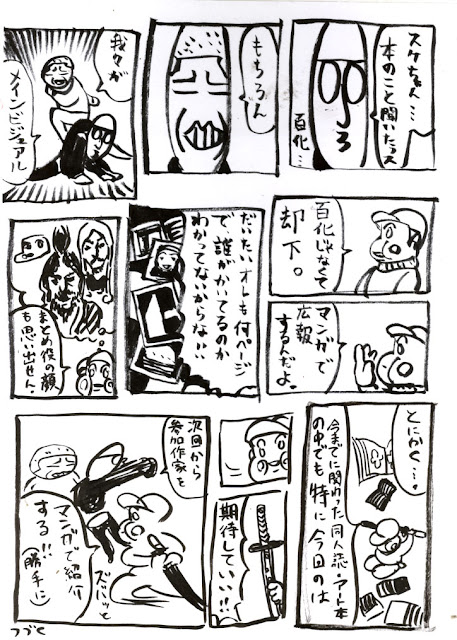 スケちゃん…
本のこと聞いたっス
百化…
もちろん
我々が
メインビジュアル
百化じゃなくて
却下。
マンガで
広報
するんだよ。
だいたいオレも何ページ
で、誰がかいてるのか
わかってないからない…
まとめ役の顔
も思い出せん。
とにかく…。
今までに関わった同人誌・アート本
の中でも特に今回のは
期待していい!!
次回から
参加作家を
ズバッと
マンガで紹介
する!!
(勝手に)
つづく